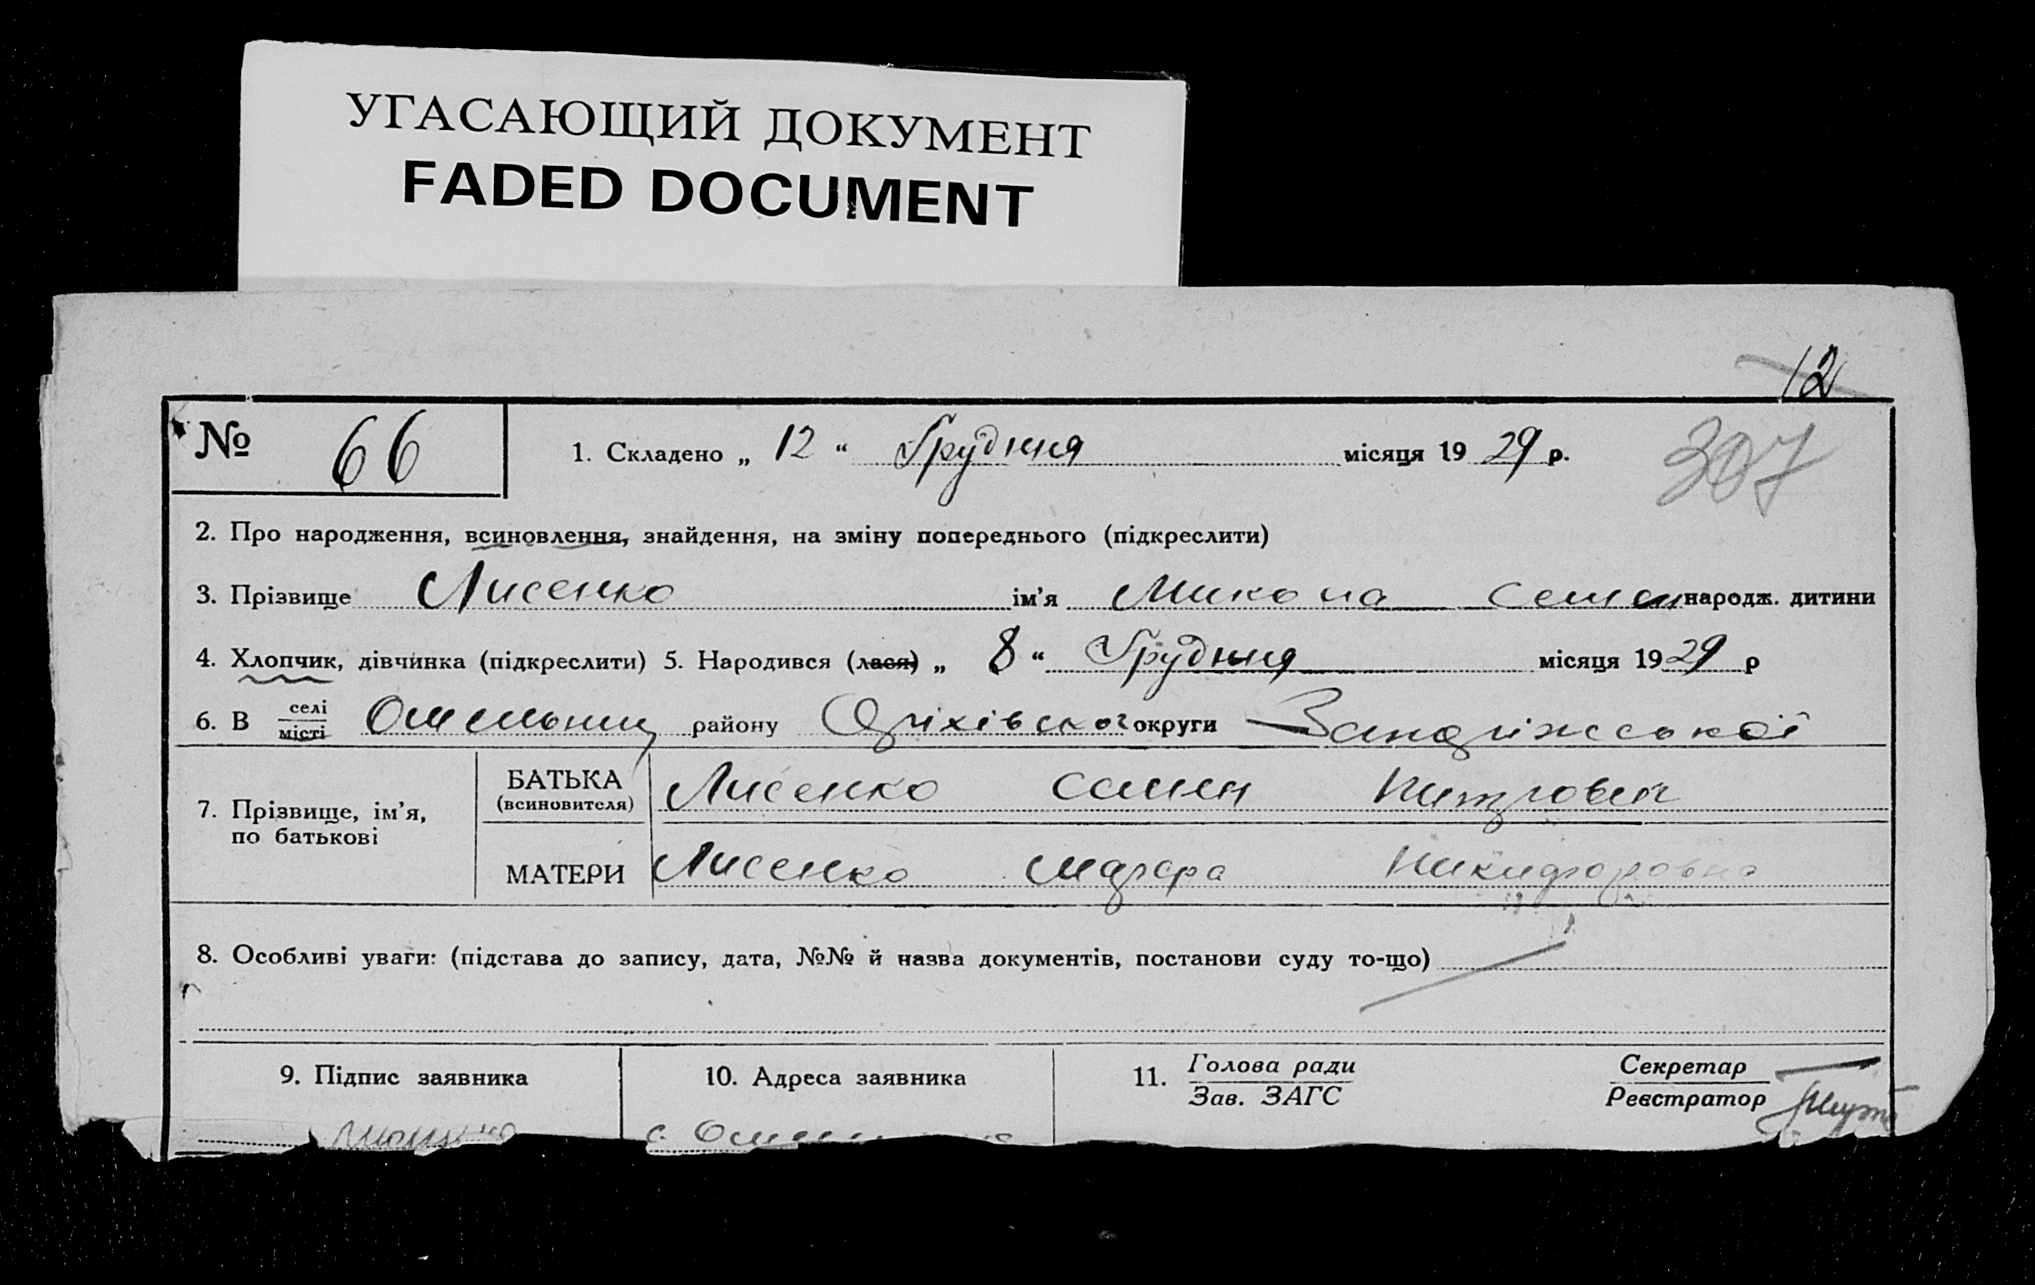 УГАСАЮЩИЙ ДОКУМЕНТ
FADED DOCUMENT
12
№ 66
1. Складено „ 12 “ Грудня місяця 19 29 р.
307
2. Про народження, всиновлення, знайдення, на зміну попереднього (підкреслити)
3. Прізвище Лисенко ім’я Микола Семен народж. дитини
4. Хлопчик, дівчинка (підкреслити) 5. Народився (лася) „ 8 “ Грудня місяця 19 29 р
6. В селі
місті Омельник району Оріхівського округи Запоріжської
7. Прізвище, ім’я,
по батькові
БАТЬКА
(всиновителя) Лисенко Семен
МАТЕРИ Лисенко Никифоровна
8. Особливі уваги: (підстава до запису, дата, №№ й назва документів, постанови суду то-що)
9. Підпис заявника
10. Адреса заявника
11. Голова ради
Зав. ЗАГС
Секретар
Реєстратор
с.